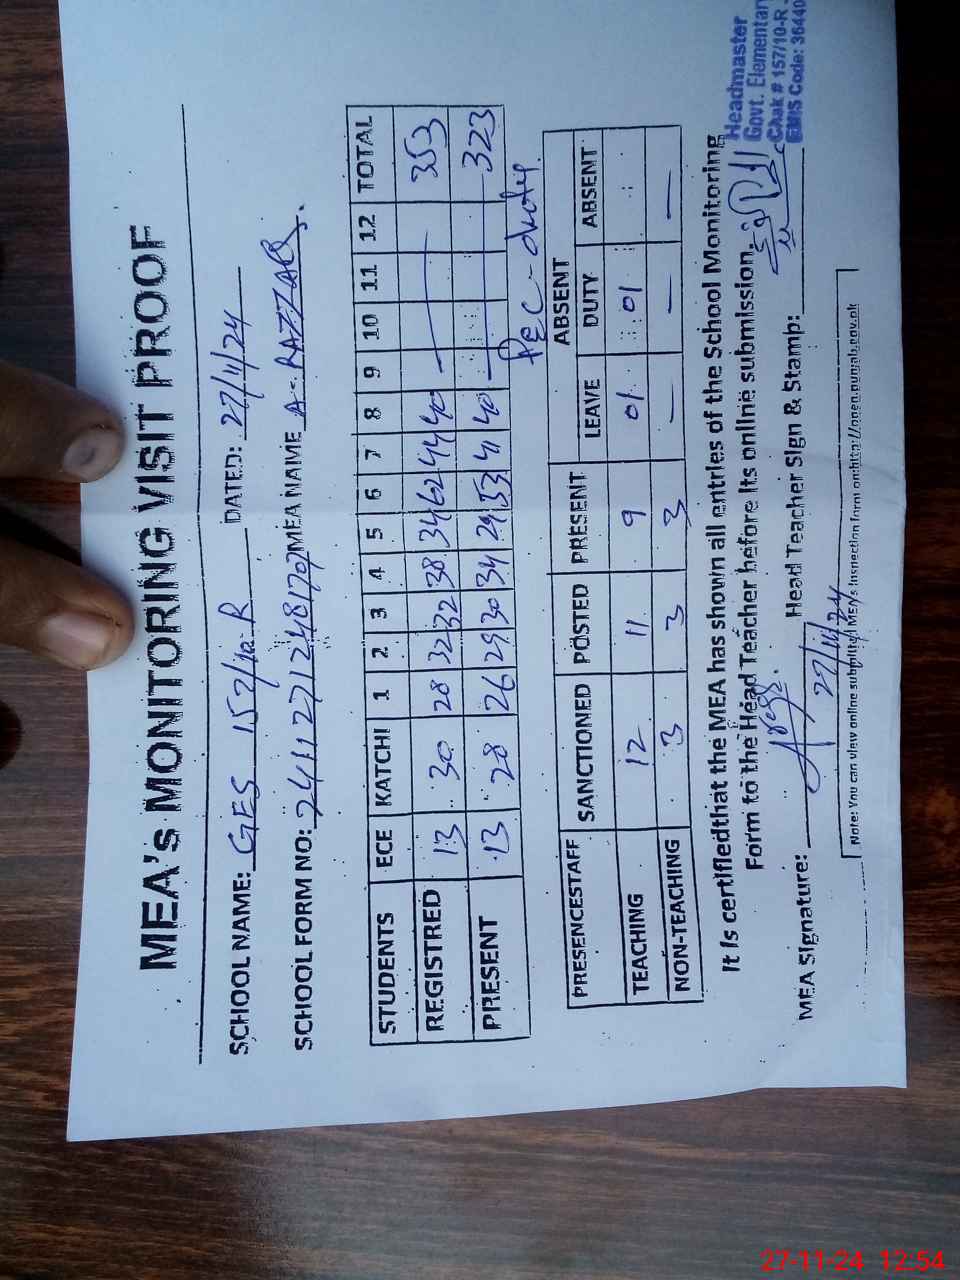 MEA's MONITORING VISIT PROOF
SCHOOL NAME: GES 157/10-R DATED: 27/11/24
SCHOOL FORM NO: 2411271248170 MEA NAME A-RAZZAQ
STUDENTS ECE KATCHI 1 2 3 4 5 6 7 8 9 10 11 12 TOTAL
REGISTRED 13 30 28 32 32 38 34 62 44 40 — 353
PRESENT 13 28 26 29 30 34 29 53 41 40 — 323
PEC-duty
PRESENCESTAFF SANCTIONED POSTED PRESENT ABSENT
LEAVE DUTY ABSENT
TEACHING 12 11 9 01 01
NON-TEACHING 3 3 3 — — —
It is certifiedthat the MEA has shown all entries of the School Monitoring
Form to the Head Teacher before its online submission.
MEA Signature: 27/11/24 Head Teacher Sign & Stamp:
Headmaster
Govt. Elementary
Chak # 157/10-R
EMIS Code: 36440
Note: You can view online submitted MEA's inspection form on:http://open.punjab.gov.pk
27-11-24 12:54